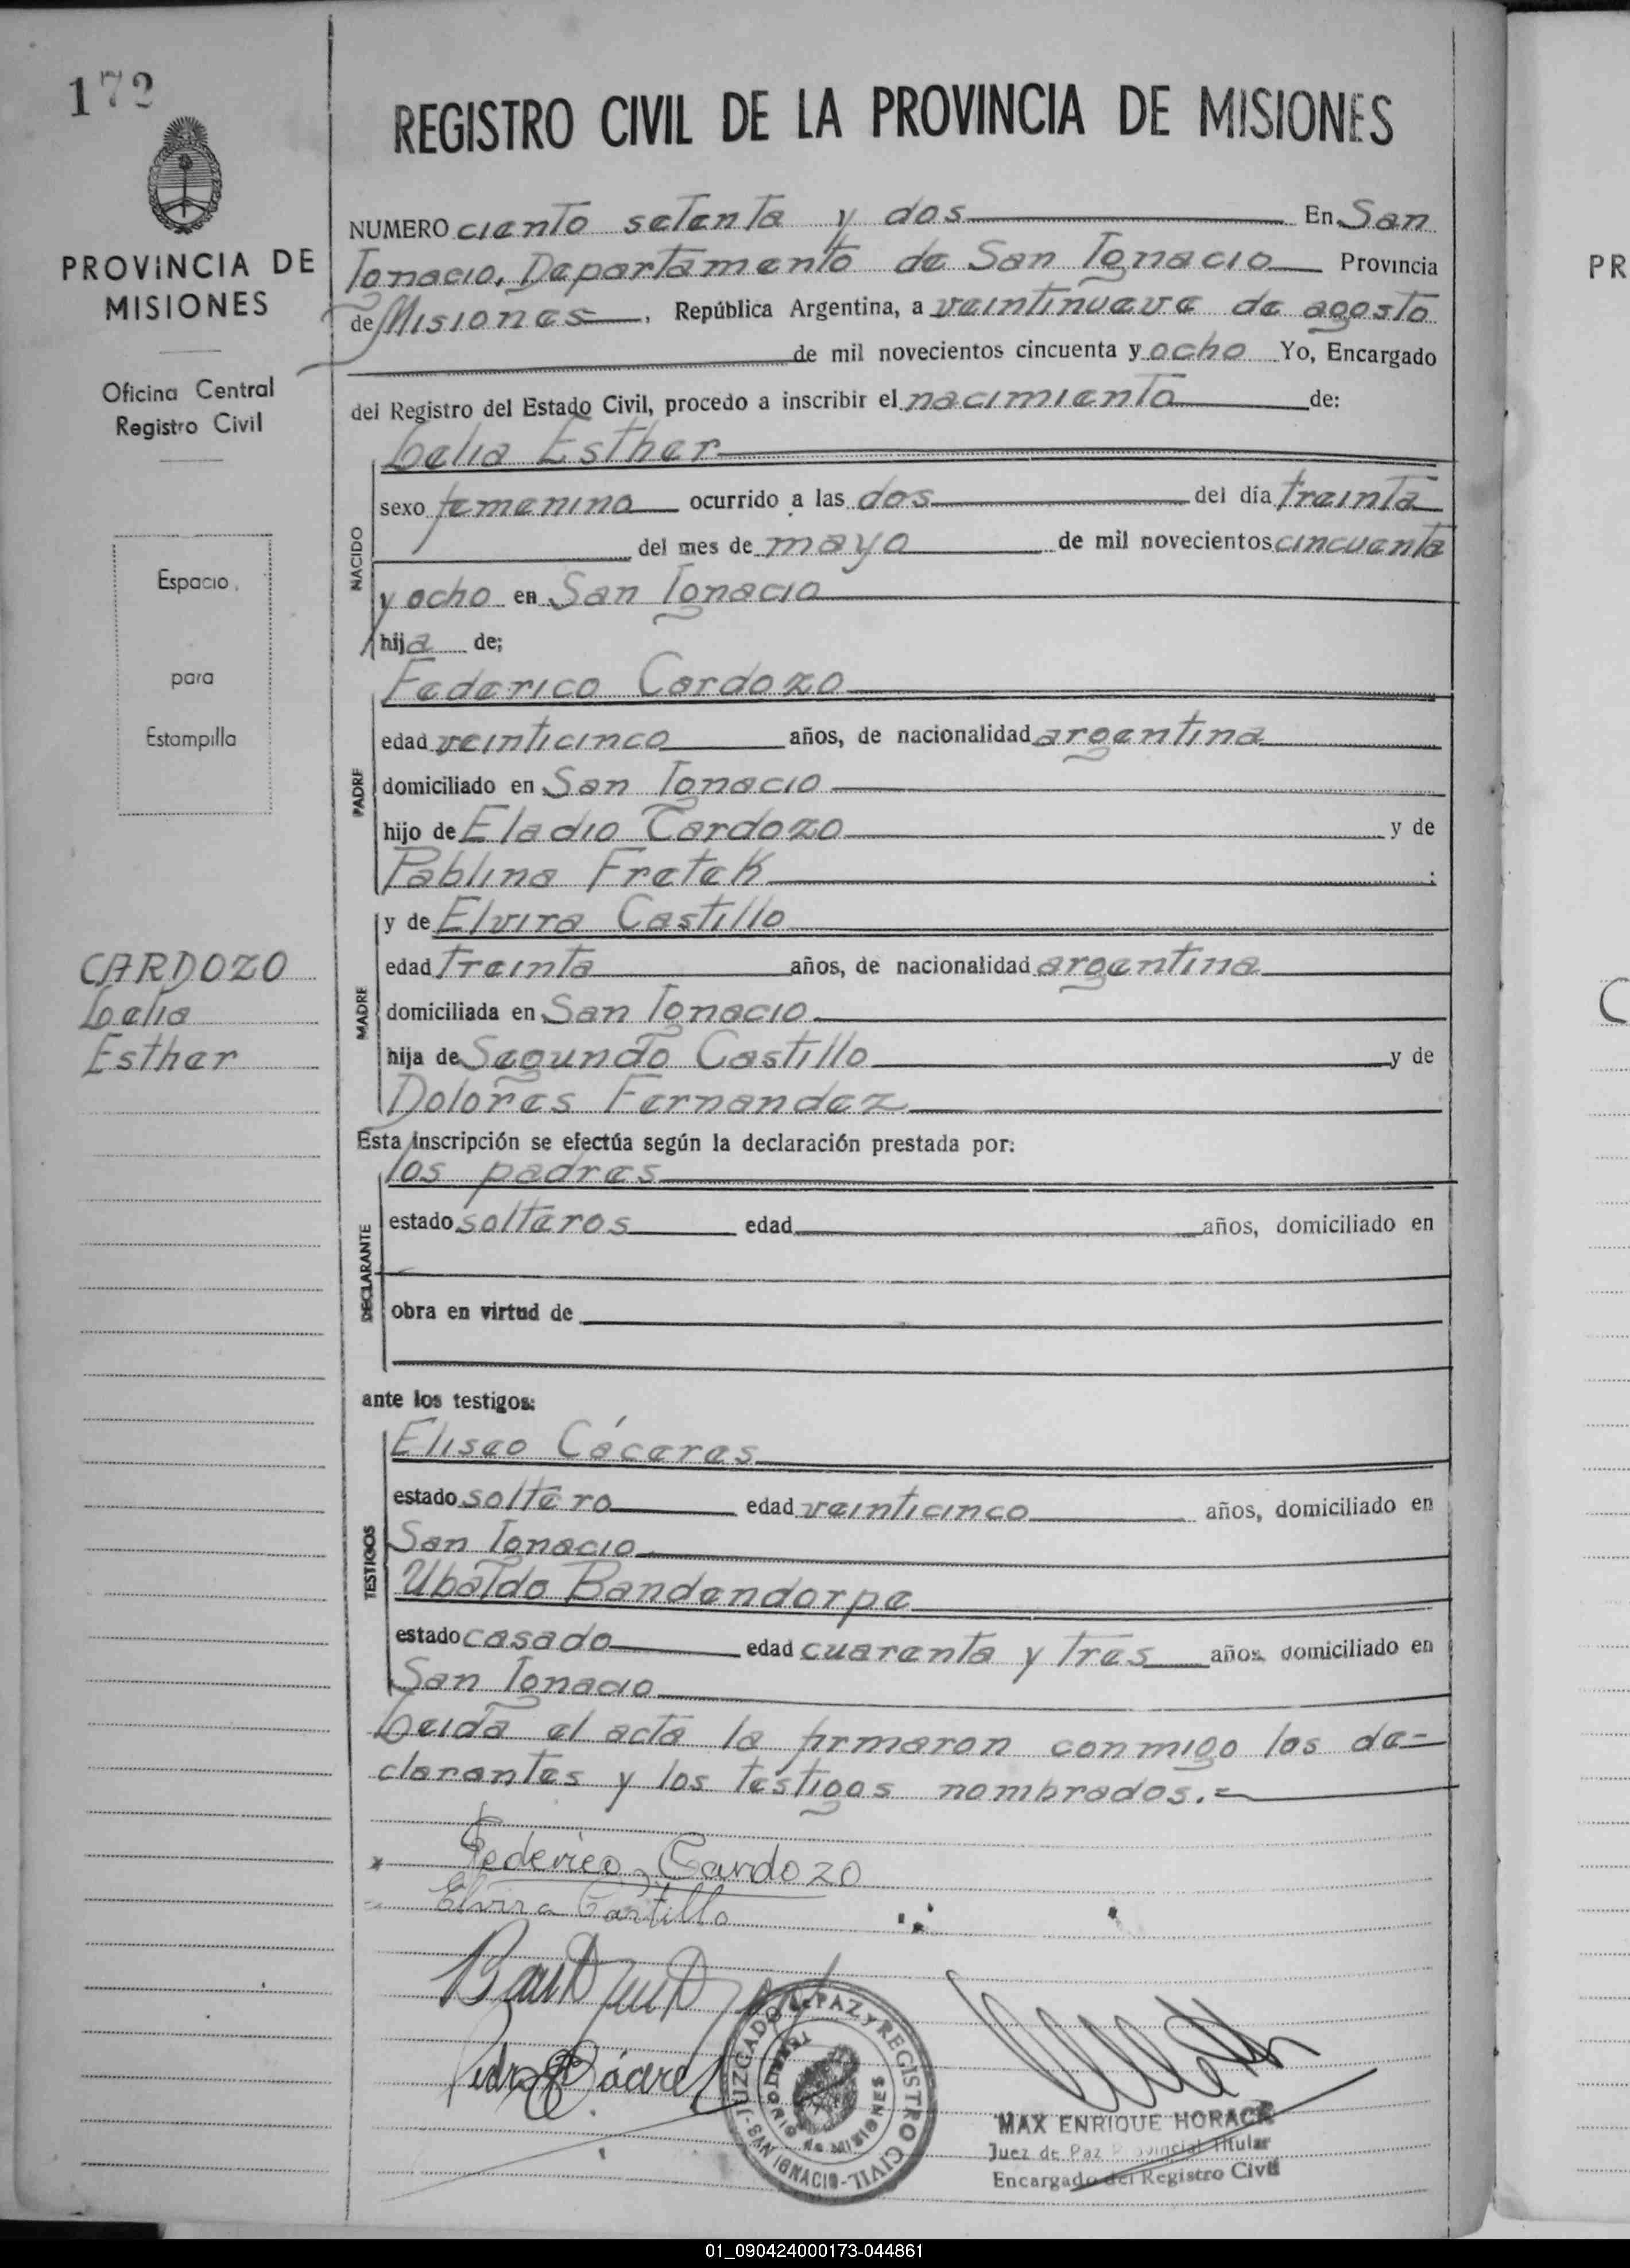 172
REGISTRO CIVIL DE LA PROVINCIA DE MISIONES
PROVINCIA DE
MISIONES
Oficina Central
Registro Civil
Espacio
para
Estampilla
CARDOZO
Lelia
Esther
NUMERO ciento setenta y dos En San
Ignacio, Departamento de San Ignacio Provincia
de Misiones, República Argentina, a veintinueve de agosto
de mil novecientos cincuenta y ocho Yo, Encargado
del Registro del Estado Civil, procedo a inscribir el nacimiento de:
NACIDO
Lelia Esther
sexo femenino ocurrido a las dos del día treinta
del mes de mayo de mil novecientos cincuenta
y ocho en San Ignacio
hija de;
PADRE
Federico Cardozo
edad veinticinco años, de nacionalidad argentina
domiciliado en San Ignacio
hijo de Eladio Cardozo y de
Pablina Fretek
MADRE
y de Elvira Castillo
edad treinta años, de nacionalidad argentina
domiciliada en San Ignacio
hija de Segundo Castillo y de
Dolores Fernandez
Esta inscripción se efectúa según la declaración prestada por:
DECLARANTE
los padres
estado solteros edad años, domiciliado en
obra en virtud de
ante los testigos:
TESTIGOS
Eliseo Cáceres
estado soltero edad veinticinco años, domiciliado en
San Ignacio
Ubaldo Bandendorpe
estado casado edad cuarenta y tres años, domiciliado en
San Ignacio
Leida el acta la firmaron conmigo los de=
clarantes y los testigos nombrados.=
Federico Cardozo
Elvira Castillo
JUZGADO de PAZ y REGISTRO CIVIL - SAN IGNACIO -
MISIONES
MAX ENRIQUE HORACE
Juez de Paz Provincial Titular
Encargado del Registro Civil
PR
C
01_090424000173-044861